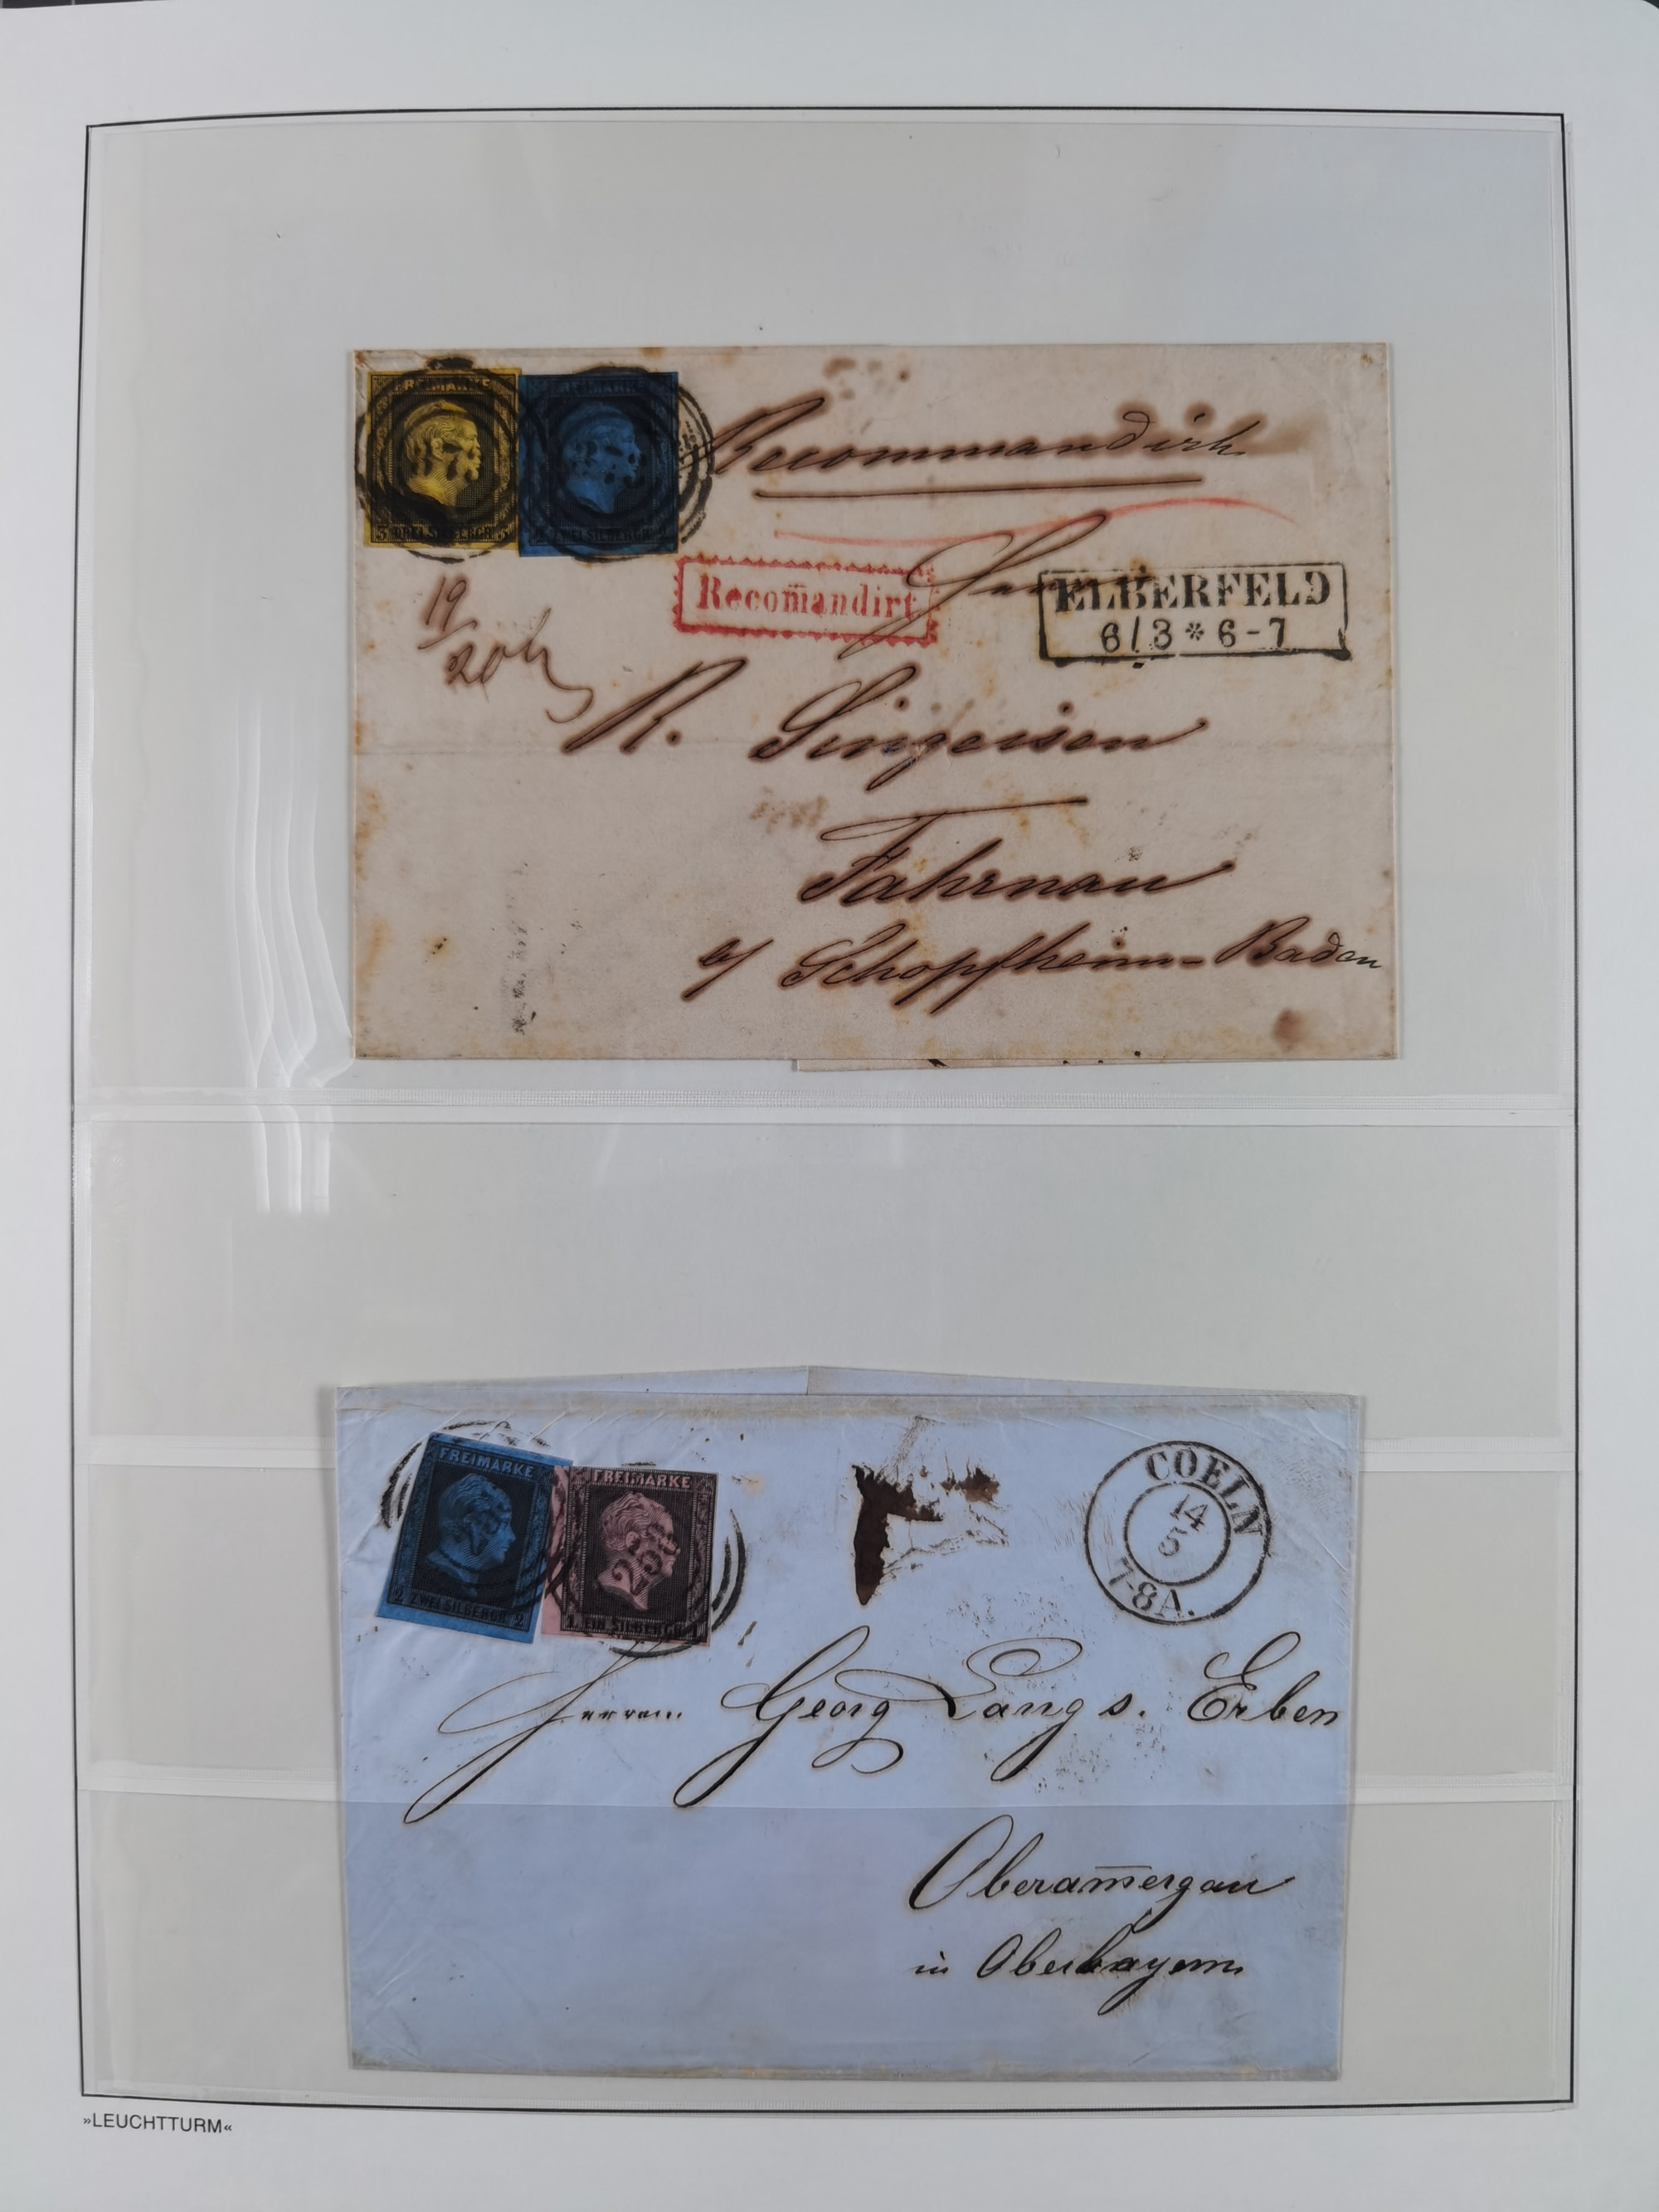 FREIMARKE FREIMARKE
3 DREI SILBERGR. 3 ZWEI SILBERGR.
Recommandirt
Recom̄andirt
ELBERFELD
6/3 * 6-7
19
R. Singeisen
Fahrnau
b/ Schopfheim-Baden
FREIMARKE FREIMARKE
2 ZWEI SILBERGR. 2 1 EIN SILBERGR. 1
COELN
14
5
7-8A.
Herren Georg Lang s. Erben
Oberam̄ergau
in Oberbayern
»LEUCHTTURM«